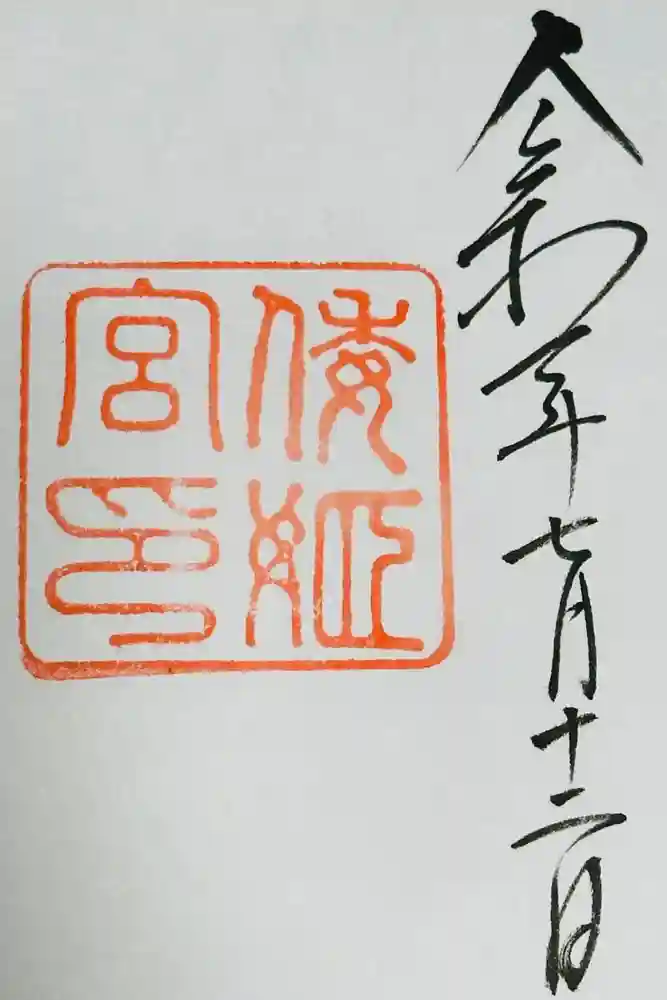 令和年七月十二日
倭姫
宮印